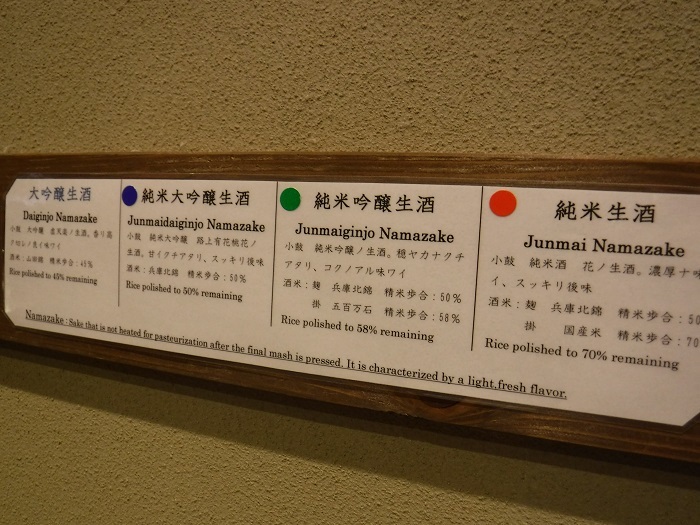 大吟醸生酒
Daiginjo Namazake
小鼓 大吟醸
酒米:山田錦 精米歩合:45%
Rice polished to 45% remaining
純米大吟醸生酒
Junmaidaiginjo Namazake
小鼓 純米大吟醸 路上有花桃花ノ
生酒。甘イクチアタリ、スッキリ後味
酒米:兵庫北錦 精米歩合:50%
Rice polished to 50% remaining
純米吟醸生酒
Junmaiginjo Namazake
小鼓 純米吟醸ノ生酒。穏ヤカナクチ
アタリ、コクノアル味ワイ
酒米:麹 兵庫北錦 精米歩合:50%
掛 五百万石 精米歩合:58%
Rice polished to 58% remaining
純米生酒
Junmai Namazake
小鼓 純米酒 花ノ生酒。濃厚ナ味
イ、スッキリ後味
酒米:麹 兵庫北錦 精米歩合:50
掛 国産米 精米歩合:70
Rice polished to 70% remaining
Namazake : Sake that is not heated for pasteurization after the final mash is pressed. It is characterized by a light,fresh flavor.